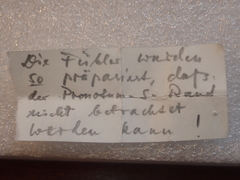 Die Fühler wurden
so präpariert, daß
der Pronotum-S-Rand
nicht betrachtet
werden kann !